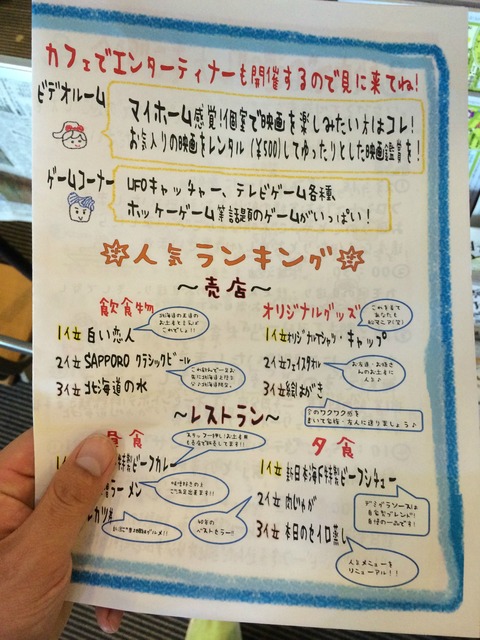 カフェでエンターティナーも開催するので見に来てね!
ビデオルーム
マイホーム感覚!個室で映画を楽しみたい方はコレ!
お気入りの映画をレンタル(¥500)してゆったりとした映画鑑賞を!
ゲームコーナー
UFOキャッチャー、テレビゲーム各種、
ホッケーゲーム等話題のゲームがいっぱい!
人気ランキング
～売店～
飲食物
1位 白い恋人
北海道の王道の
お土産と言えば
これでしょ!!
2位 SAPPORO クラシックビール
3位 北海道の水
オリジナルグッズ
これを着て
あなたも
船マニア(笑)
1位 オリジナルTシャツ・キャップ
2位 フェイスタオル
お友達・お孫さ
んのお土産に
人気♪
3位 絵はがき
今のワクワク感を
～レストラン～
昼食
特製ビーフカレー
スタッフ一押し!お土産用
も売店で販売してます!!
ラーメン
味噌好きの
カツ丼
60年の
ベストセラー!!
夕食
1位 新日本海F特製ビーフシチュー
デミグラソースは
自家製ブレンド!!
自慢の一品です!
2位 肉じゃが
3位 本日のセイロ蒸し
人気メニューを
リニューアル!!